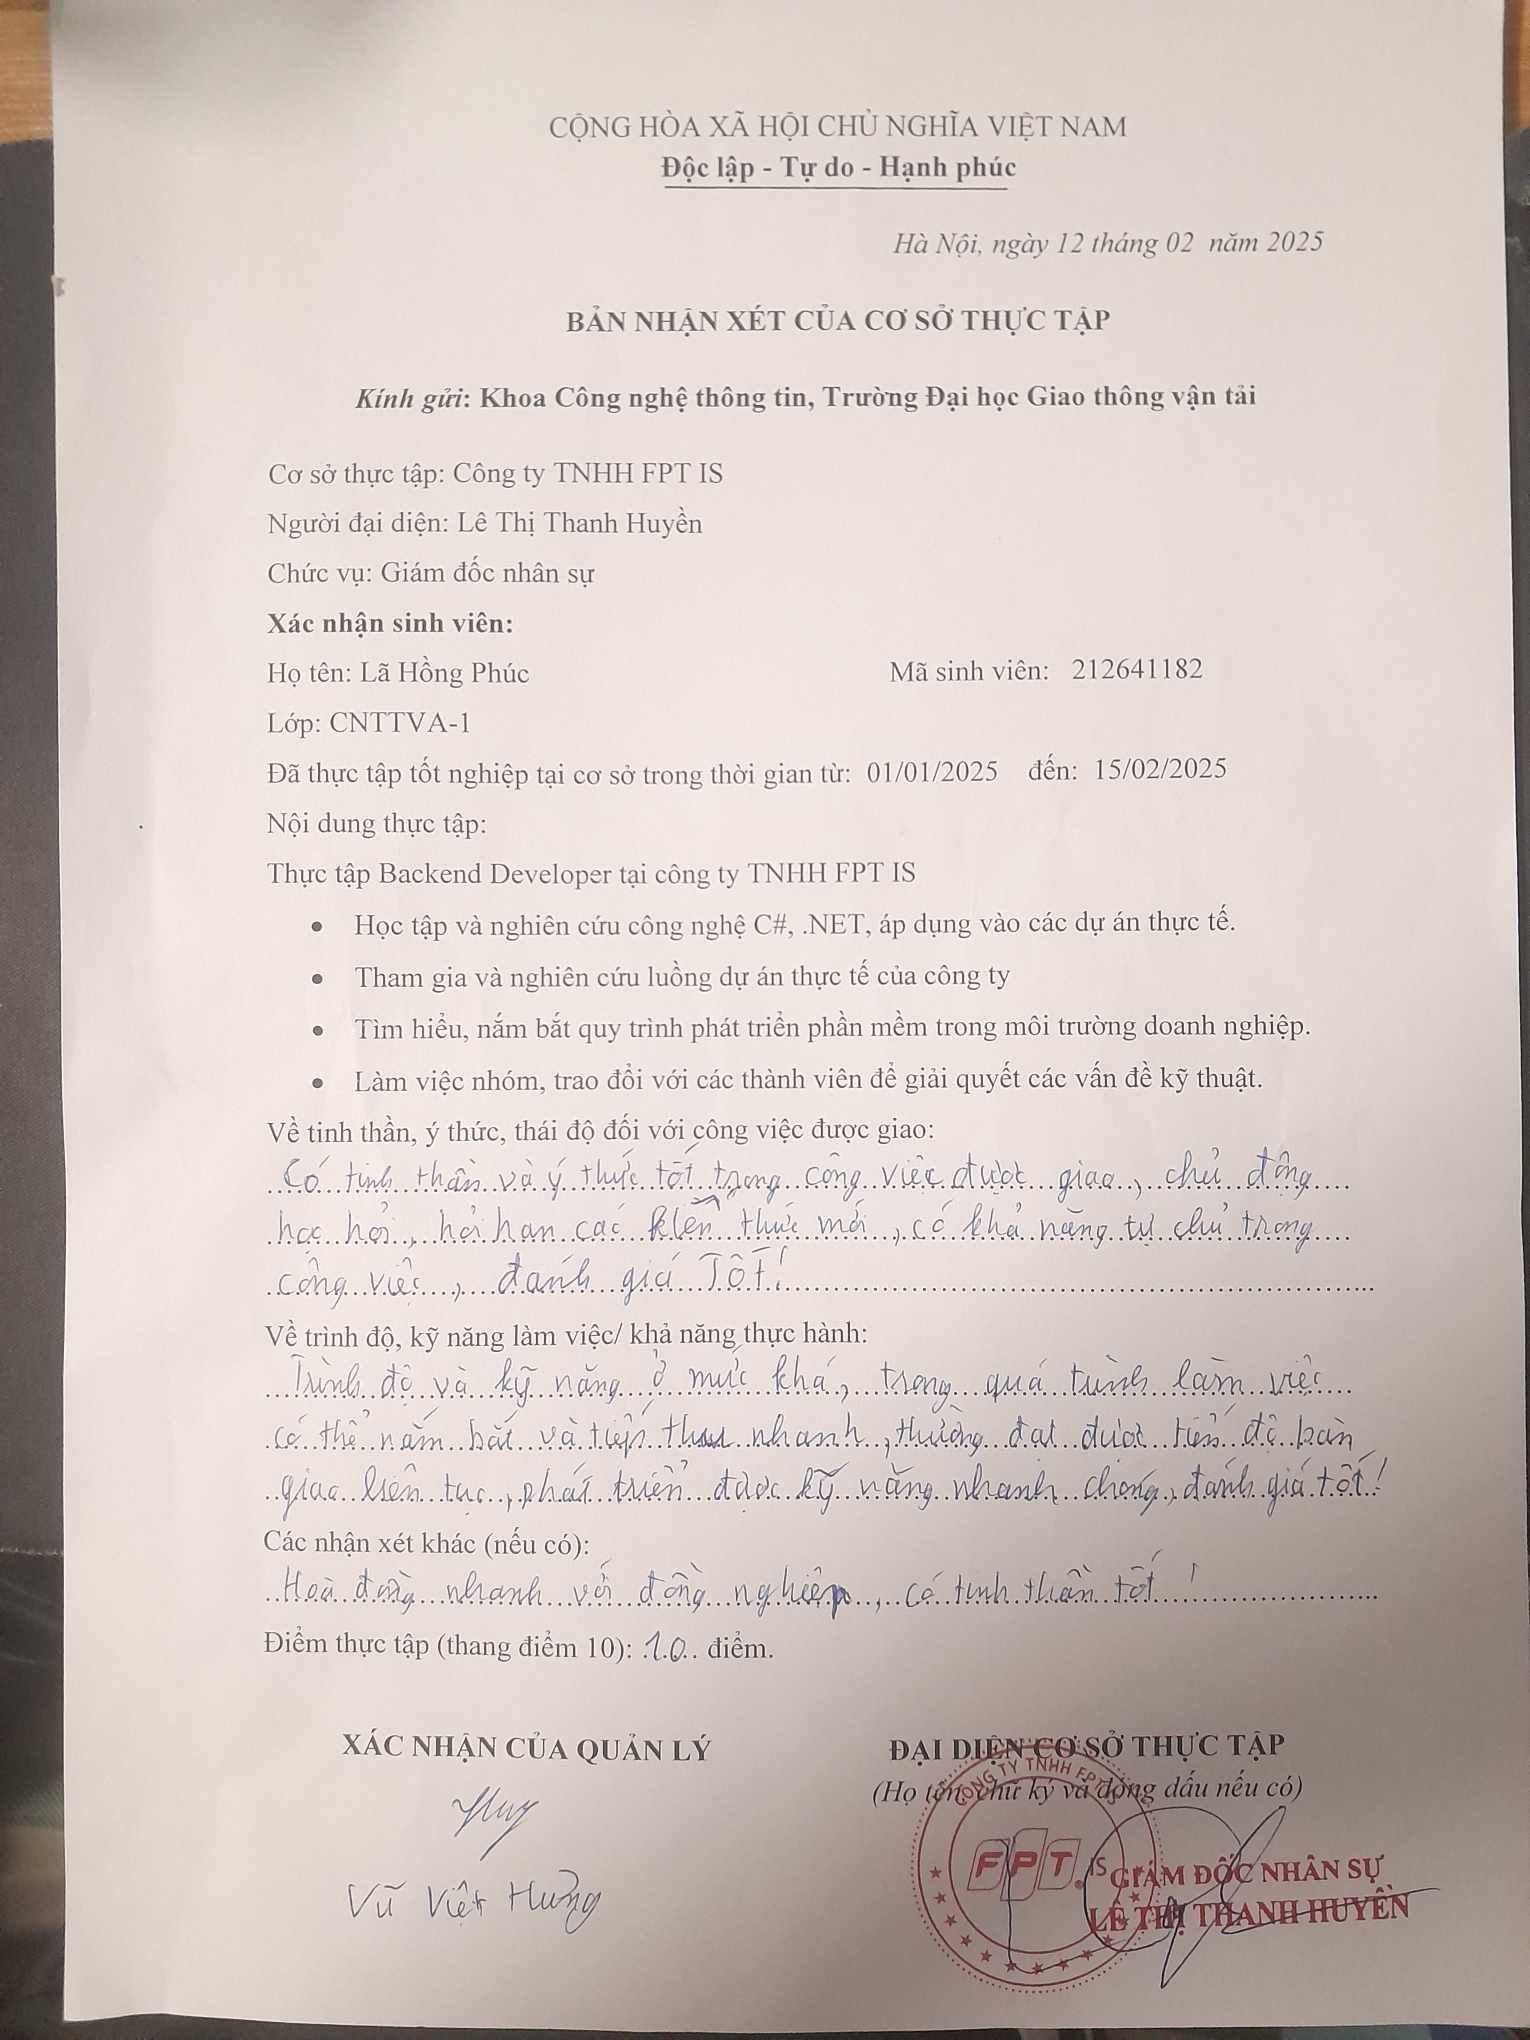 CỘNG HÒA XÃ HỘI CHỦ NGHĨA VIỆT NAM
Độc lập - Tự do - Hạnh phúc
Hà Nội, ngày 12 tháng 02 năm 2025
BẢN NHẬN XÉT CỦA CƠ SỞ THỰC TẬP
Kính gửi: Khoa Công nghệ thông tin, Trường Đại học Giao thông vận tải
Cơ sở thực tập: Công ty TNHH FPT IS
Người đại diện: Lê Thị Thanh Huyền
Chức vụ: Giám đốc nhân sự
Xác nhận sinh viên:
Họ tên: Lã Hồng Phúc Mã sinh viên: 212641182
Lớp: CNTTVA-1
Đã thực tập tốt nghiệp tại cơ sở trong thời gian từ: 01/01/2025 đến: 15/02/2025
Nội dung thực tập:
Thực tập Backend Developer tại công ty TNHH FPT IS
• Học tập và nghiên cứu công nghệ C#, .NET, áp dụng vào các dự án thực tế.
• Tham gia và nghiên cứu luồng dự án thực tế của công ty
• Tìm hiểu, nắm bắt quy trình phát triển phần mềm trong môi trường doanh nghiệp.
• Làm việc nhóm, trao đổi với các thành viên để giải quyết các vấn đề kỹ thuật.
Về tinh thần, ý thức, thái độ đối với công việc được giao:
Có tinh thần và ý thức tốt trong công việc được giao, chủ động
học hỏi, hỏi han các kiến thức mới, có khả năng tự chủ trong
công việc, đánh giá Tốt!
Về trình độ, kỹ năng làm việc/ khả năng thực hành:
Trình độ và kỹ năng ở mức khá, trong quá trình làm việc
có thể nắm bắt và tiếp thu nhanh, thường đạt được tiến độ bàn
giao liên tục, phát triển được kỹ năng nhanh chóng, đánh giá tốt!
Các nhận xét khác (nếu có):
Hoà đồng nhanh với đồng nghiệp, có tinh thần tốt!
Điểm thực tập (thang điểm 10): 10 điểm.
XÁC NHẬN CỦA QUẢN LÝ ĐẠI DIỆN CƠ SỞ THỰC TẬP
(Họ tên, chữ ký và đóng dấu nếu có)
CÔNG TY TNHH FPT IS
FPT IS
GIÁM ĐỐC NHÂN SỰ
LÊ THỊ THANH HUYỀN
Vũ Việt Hưng